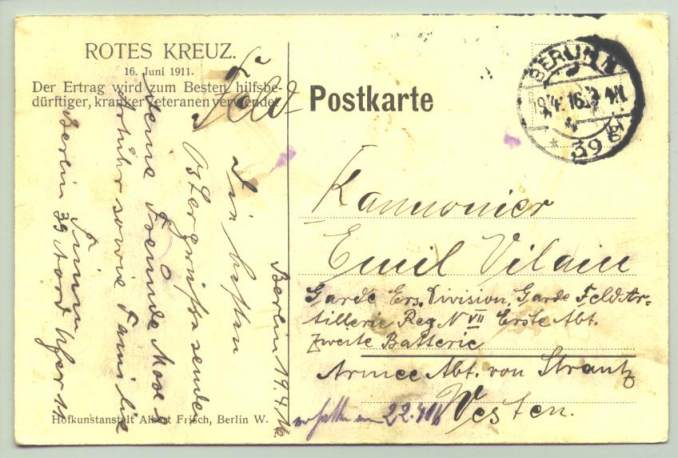 ROTES KREUZ.
16. Juni 1911.
Der Ertrag wird zum Besten hilfsbe-
dürftiger, kranker Veteranen verwendet.
Feld-
Postkarte
BERLIN N
19.4.16
* 39 g
Berlin 19.4.16
Die besten
Ostergrüße sendet
deine Freunde
Arthur sowie Familie
Timm
Berlin 39 Nord Ufer 11
Kannonier
Emil Vilain
Garde Ers. Division, Garde Feldar-
tillerie Reg. N VII Erste Abt.
zweite Batterie
Armee Abt. von Strantz
Westen.
erhalten am 22.4.16
Hofkunstanstalt Albert Frisch, Berlin W.